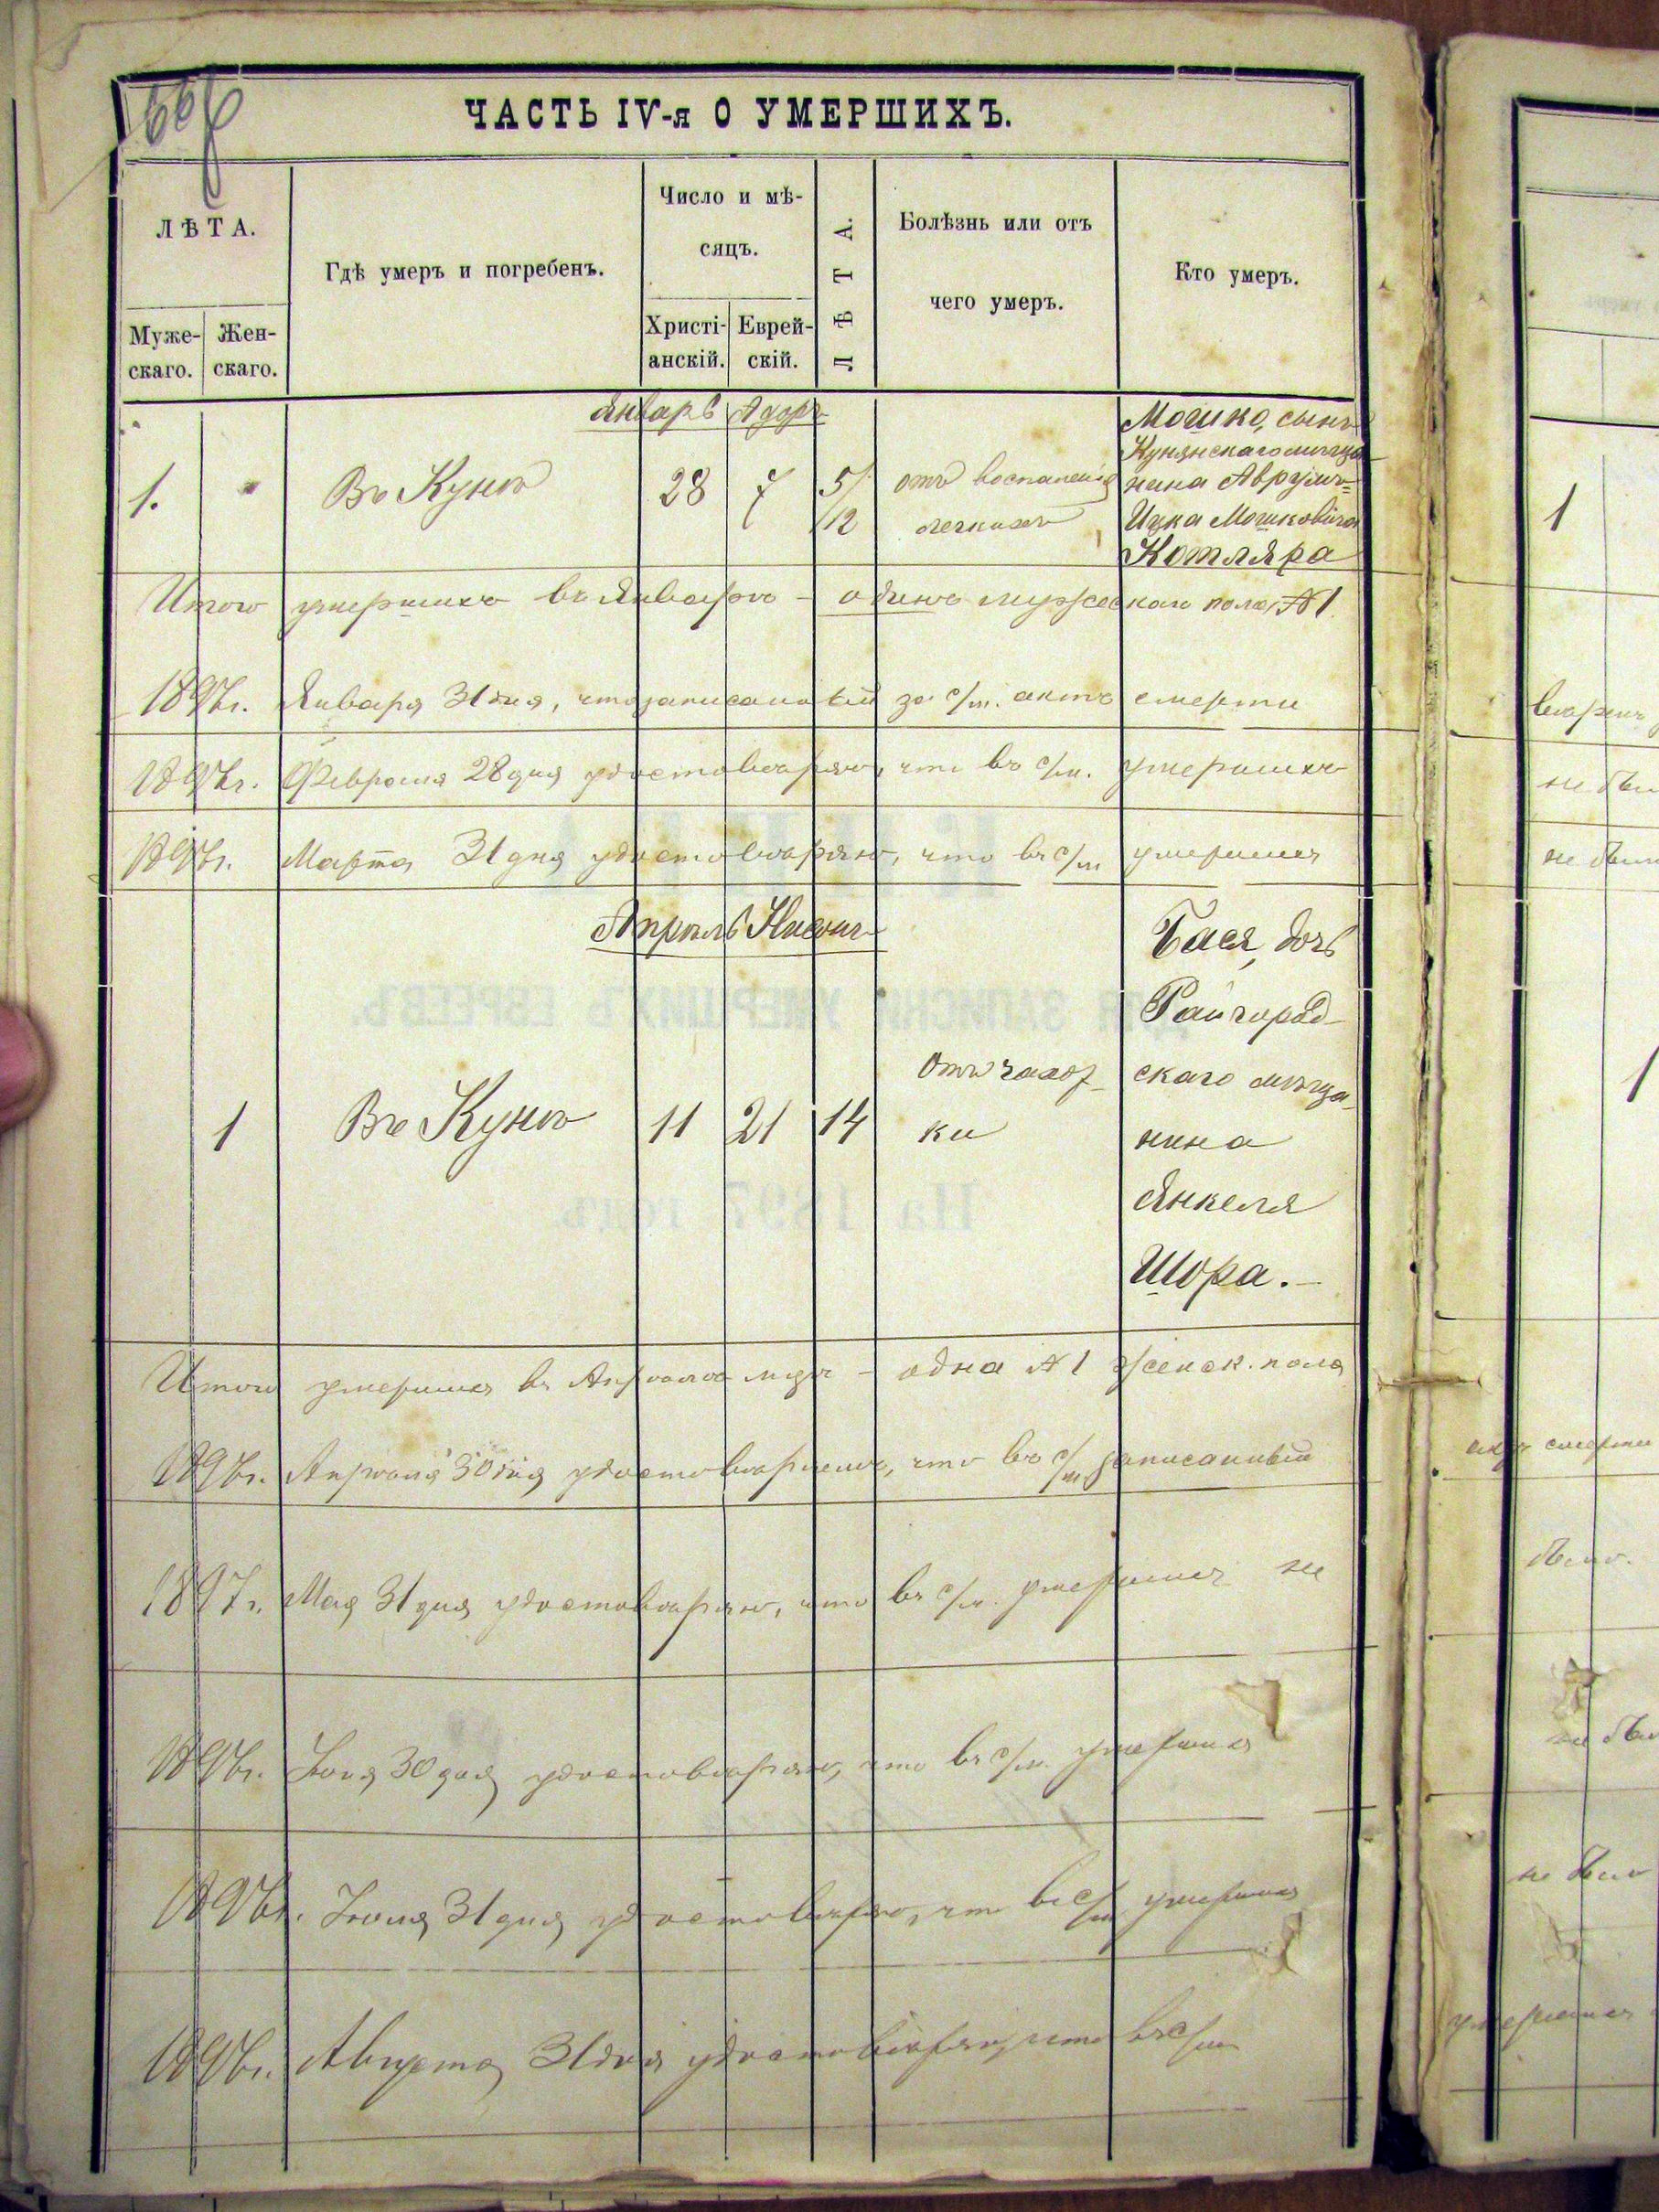 ЧАСТЬ IV-я О УМЕРШИХЪ.
ЛѢТА.
Муже-
скаго.
Жен-
скаго.
Гдѣ умеръ и погребенъ.
Число и мѣ-
сяцъ.
Христі-
анскій.
Еврей-
скій.
ЛѢТА.
Болѣзнь или отъ
чего умеръ.
Кто умеръ.
Январь Адаръ
1.
Въ Кунѣ
28
7
5/12
отъ воспаленія
легкихъ
Мошко, сынъ
Кунянскаго мѣща
нина Аврумъ=
Ицка Мошковича
Котляра
Итого умершихъ въ Январѣ - одинъ мужескаго пола, №1.
1897г. Января 31 дня, что записанный за с/м. актъ смерти
1897г. Февраля 28 дня удостовѣряю, что въ с/м. умершихъ
1897г. Марта 31 дня удостовѣряю, что въ с/м умершихъ
Апрѣль Нисанъ
1
Въ Кунѣ
11
21
14
Отъ чахот-
ки
Бася, дочь
Райгород-
скаго мѣща-
нина
Янкеля
Шора.-
Итого умершихъ въ Апрѣлѣ мцѣ - одна №1 женск. пола
1897г. Апрѣля 30 дня удостовѣряемъ, что въ с/м записанный
1897г. Мая 31 дня удостовѣряю, что въ с/м. умершихъ не
1897г. Іюня 30 дня удостовѣряю, что въ с/м. умершихъ
1897г. Іюля 31 дня удостовѣряю, что въ с/м умершихъ
1897г. Августа 31 дня удостовѣряю, что въ с/м
1
не был
не был
1
смерти
было.
не был
не было
умершихъ